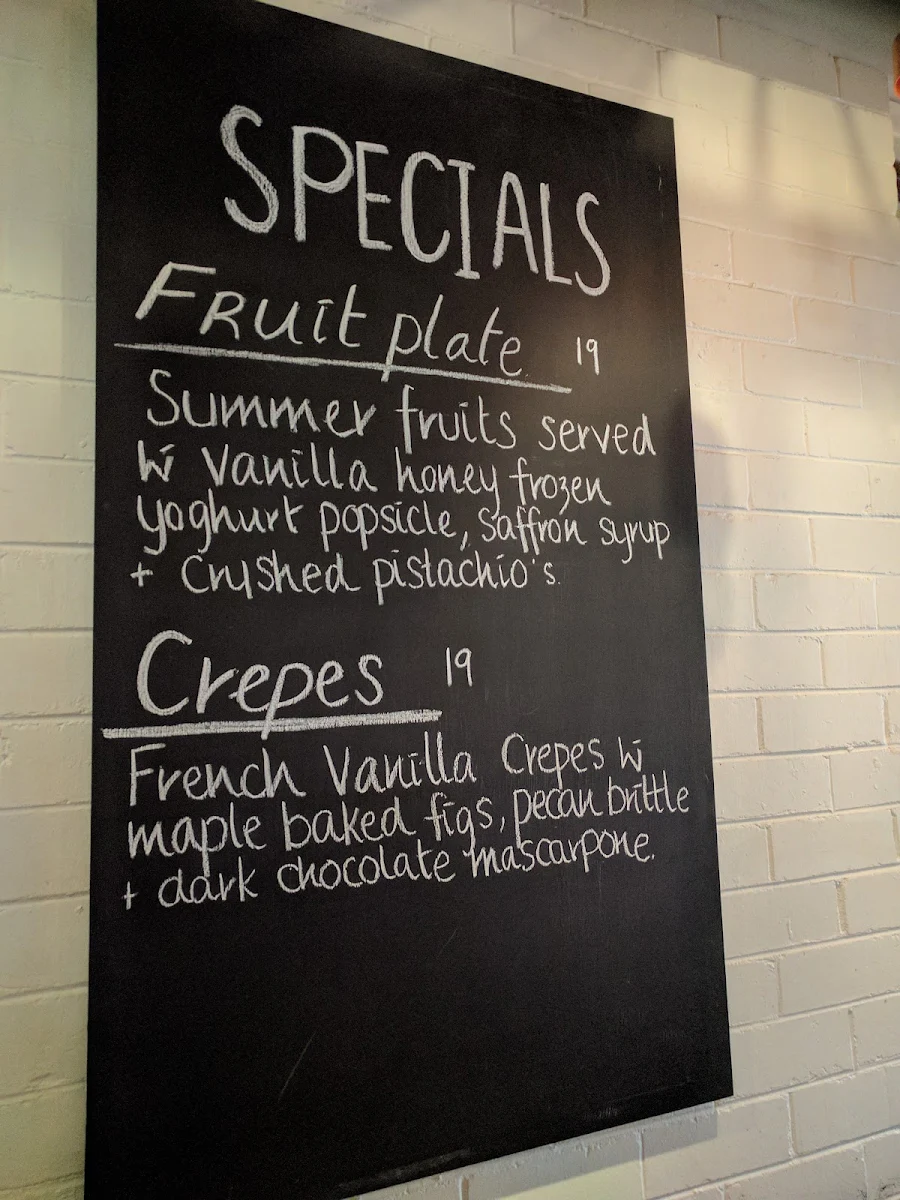 SPECIALS
Fruit plate 19
Summer fruits served
w/ Vanilla honey frozen
yoghurt popsicle, saffron syrup
+ crushed pistachio's.
Crepes 19
French Vanilla Crepes w/
maple baked figs, pecan brittle
+ dark chocolate mascarpone.